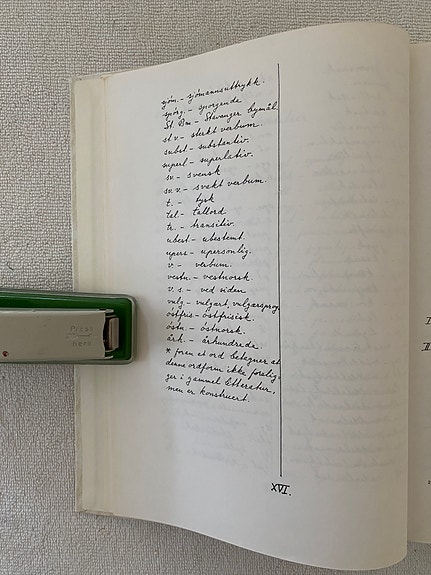 sjóm. - sjómannsuttrykk.
spörg. - spörgende
St. Bm - Stavanger bymål.
st v - sterkt verbum.
subst - substantiv.
superl - superlativ.
sv - svensk
sv. v. - svakt verbum.
t. - tysk
tal - tallord
tr. - transitiv.
ubest - ubestemt.
upers - upersonlig.
v - verbum.
vestn. - vestnorsk.
v. s. - ved siden
vulg - vulgært, vulgærsprog
östfris - östfrisisk.
östn - östnorsk.
årh. - århundrede.
* foran et ord betegner at
denne ordform ikke forelig-
ger i gammel litteratur,
men er konstruert.
XVI.
Press
Here